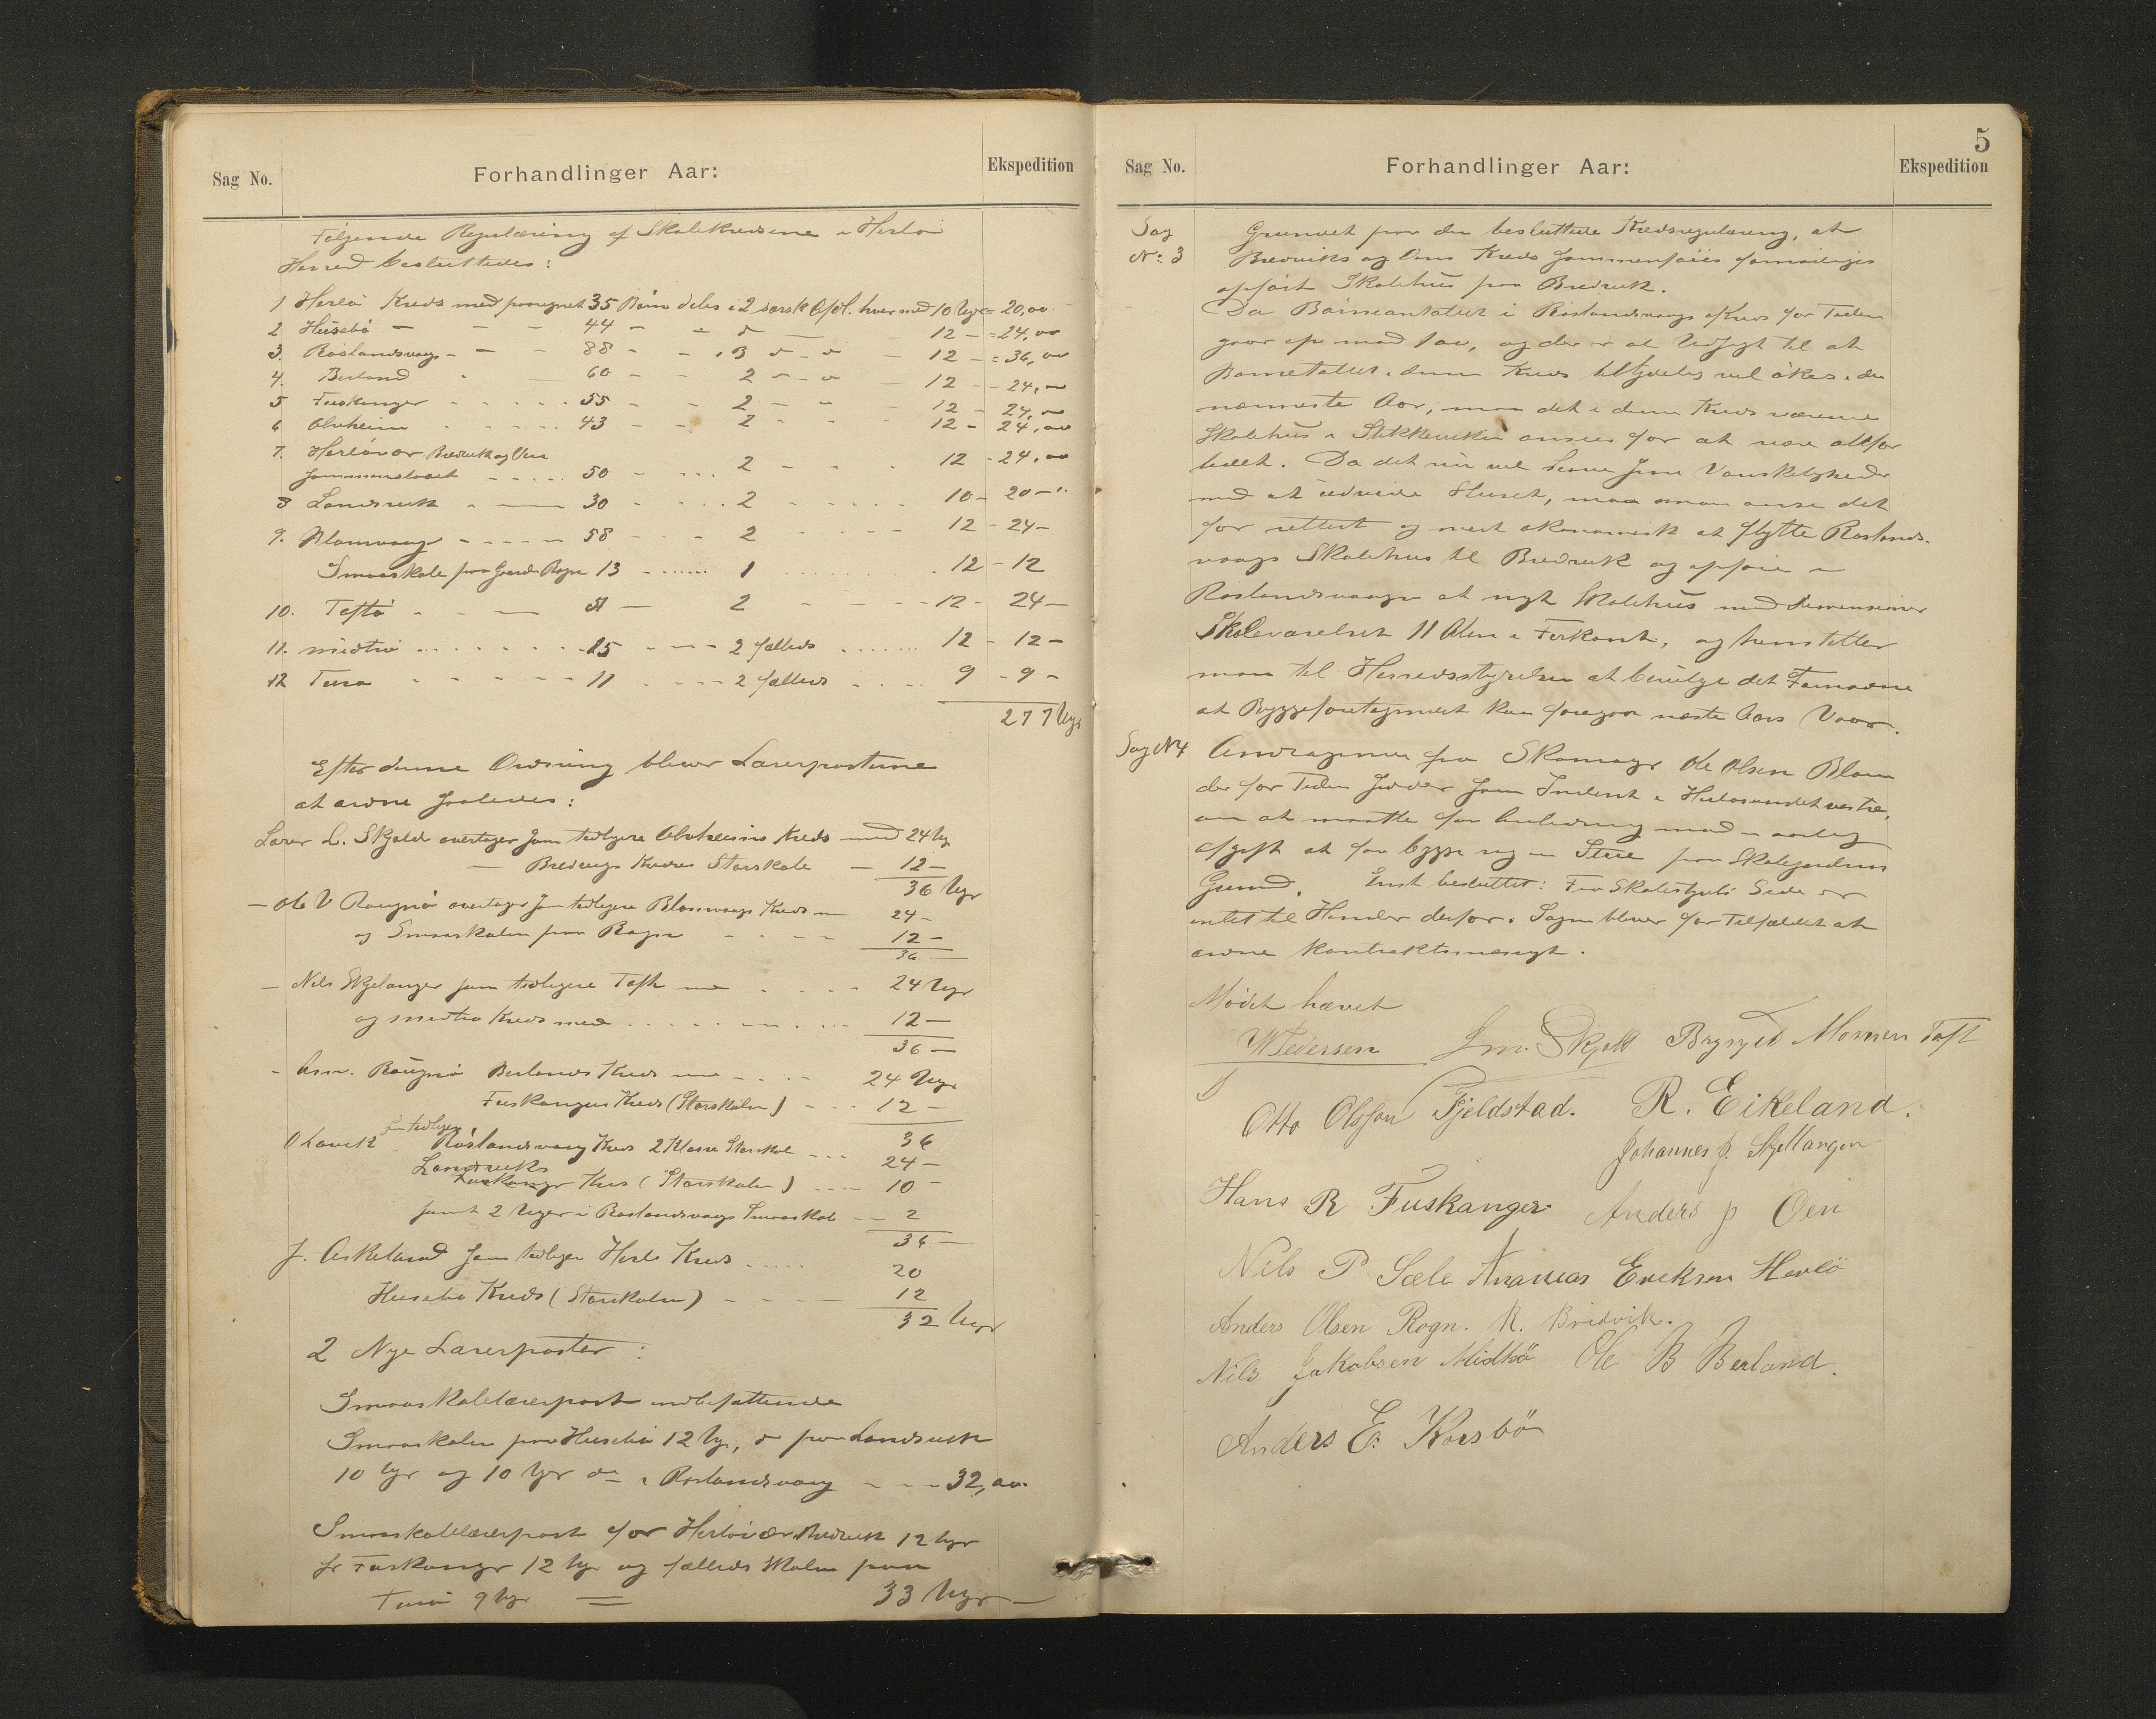 Sag No.
Forhandlinger Aar:
Ekspedition
Følgende Regulæring af Skolekredsene i Herlø
Herred besluttedes:
1 Herlø Kreds med paaregnet 35 Børn deles i 2 særsk Afdl. hver med 10 Uger = 20,00
2 Husebø — — — 44 — 12 — = 24,00
3. Röslandsvaag - — - 88 - - 3 12 — = 36,00
4. Berland 60 - - 2 12 - - 24,
5 Fuskanger - - - - - 55 - - 2 12 - 24,
6 Alvheim - - - - - 43 - - 2 12 - 24,00
7. Herløvær Bredvik og Oen
Sammenslaaet - - - - 50 - - - 2 - - - 12 - 24,00
8 Landsvik - — 30 - - - 2 - - - - 10 - 20 -
9. Blomvaag - - - - - 58 - - - 2 - - - - 12 - 24 -
Smaaskole paa Gaarden Rogn 13 - - - - 1 12 - 12
10. Toftø - - — 51 — 2 - - - 12 - 24 —
11. Midtø - - - - - 15 - - - 2 fælleds 12 - 12 -
12 Turø - - - - - 11 - - - 2 fælleds - - - 9 - 9 -
277 Uger
Efter denne Ordning bliver Lærerposterne
at ordne saaledes:
Lærer L. Skjold overtager som tidligere Alvheims Kreds med 24 Ug
— Bredviks Kredses Storskole — 12 —
36 Uger
— Ole V Rougnø overtager som tidligere Blomvaags Kreds m 24 -
og Smaaskolen paa Rogn - - - - 12 -
36
— Nils Skjelanger som tidligere Toft med - - - 24 Uger
og Midtø Kreds med - - - - - 12 —
36 —
- Rougnø Berlands Kreds med - - - 24 Uger
Fuskanger Kreds (Storskolen) - - - 12 —
som tidligere 36
O Lavik Röslandsvaag Kreds 2 Klasse Storskole - - - 24 —
Landsviks
Fuskanger Kreds (Storskolen) - - - 10 -
samt 2 Uger i Roslandsvaags Smaaskole - - 2
36 —
J. Askeland som tidligere Herlø Kreds - - - - 20
Husebø Kreds (Storskolen) - - - - 12
32 Uger
2 Nye Lærerposter:
Smaaskolelærerpost indbefattende
Smaaskolen paa Husebø 12 Ug, do paa Landsvik
10 Ugr og 10 Ugr do i Roslandsvaag - - - 32,00
Smaaskolelærerpost for Herløvær Bredvik 12 Ugr
for Fuskanger 12 Ugr og fælleds Skolen paa
Turø 9 Ugr = 33 Uger
5
Sag No.
Forhandlinger Aar:
Ekspedition
Sag
No: 3
Grundet paa den besluttede Kredsregulæring, at
Bredviks og Oens Kreds sammenføies
opført Skolehus paa Bredvik.
Da Børneantallet i Röslandsvaags Kreds for Tiden
gaar op mod 100, og der er al Udsigt til at
Barnetallet i denne Kreds vil økes i de
nærmeste Aar, maa det i denne Kreds værende
Skolehus i Stikkelviken ansees for at være altfor
lidet. Da det nu vil have sine Vanskeligheder
med at udvide Huset, maa man anse det
for rettest og mest økonomisk at flytte Roslands-
vaags Skolehus til Bredvik og opføre i
Roslandsvaagen et nyt Skolehus med Dimensioner
Skoleværelset 11 Alen i Firkant, og henstiller
man til Herredsstyrelsen at bevilge det Fornødne
at Byggeforetagendet kan foregaa næste Aars Vaar.
Sag No 4
Andragende fra Skomager Ole Olsen Blom
der for Tiden sidder som Inderst i Herløsundet vestre,
om at maatte faa mod en aarlig
afgift at faa bygge sig en Stue paa Skolejordens
Grund. Enst. besluttet: Fra Skolestyrets Side er
intet til Hinder derfor. Sagen bliver for Tilfældet at
ordne kontraktsmæsigt.
Mødet hævet
W Pedersen Lm. Skjold Brynjel Monsen Toft
Otto Olsson Fjeldstad. R. Eikeland.
Johannes J. Skjellanger
Hans R Fuskanger Anders J Oen
Nils P Sæle Ananias Erikson Herlø
Anders Olsen Rogn. R. Bredvik.
Nils Jakobsen Midtbø Ole B Berland.
Anders E. Korsbøn